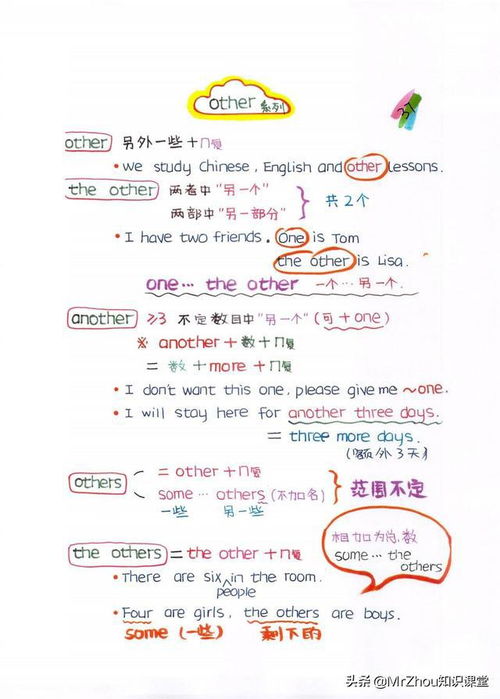 other 系列
37
other 另外一些 + 几复
• we study Chinese, English and other lessons.
the other 两者中“另一个”
两部中“另一部分” } 共2个
• I have two friends. One is Tom
the other is Lisa.
one… the other 一个…另一个.
another ≥3 不定数目中“另一个”(可+one)
※ another + 数 + 几复
= 数 + more + 几复
• I don't want this one, please give me ~one.
• I will stay here for another three days.
= three more days.
(额外3天)
others = other + 几复
some… others (不加名) } 范围不定
一些 另一些
相加为总数
some… the others
the others = the other + 几复
• There are six people in the room.
• Four are girls, the others are boys.
some (一些) 剩下的
头条 @MrZhou知识课堂